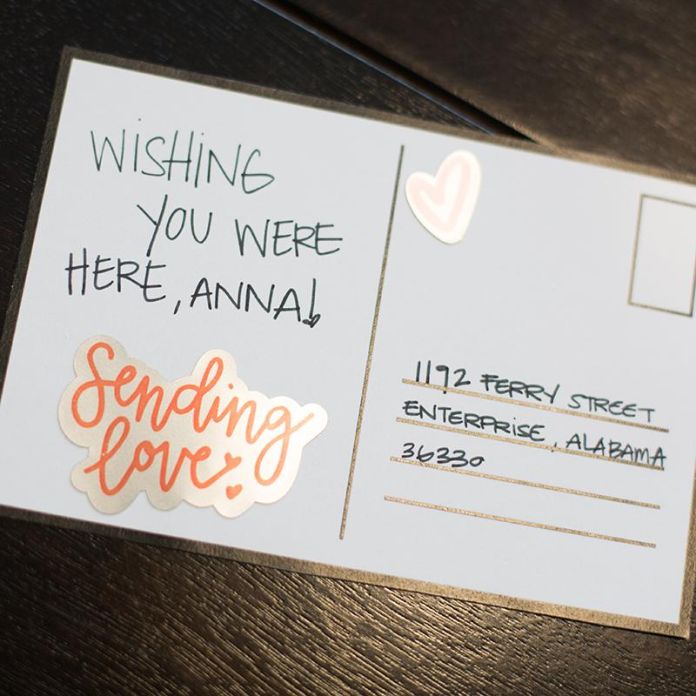 WISHING
YOU WERE
HERE, ANNA!
Sending
love
1192 FERRY STREET
ENTERPRISE, ALABAMA
36330